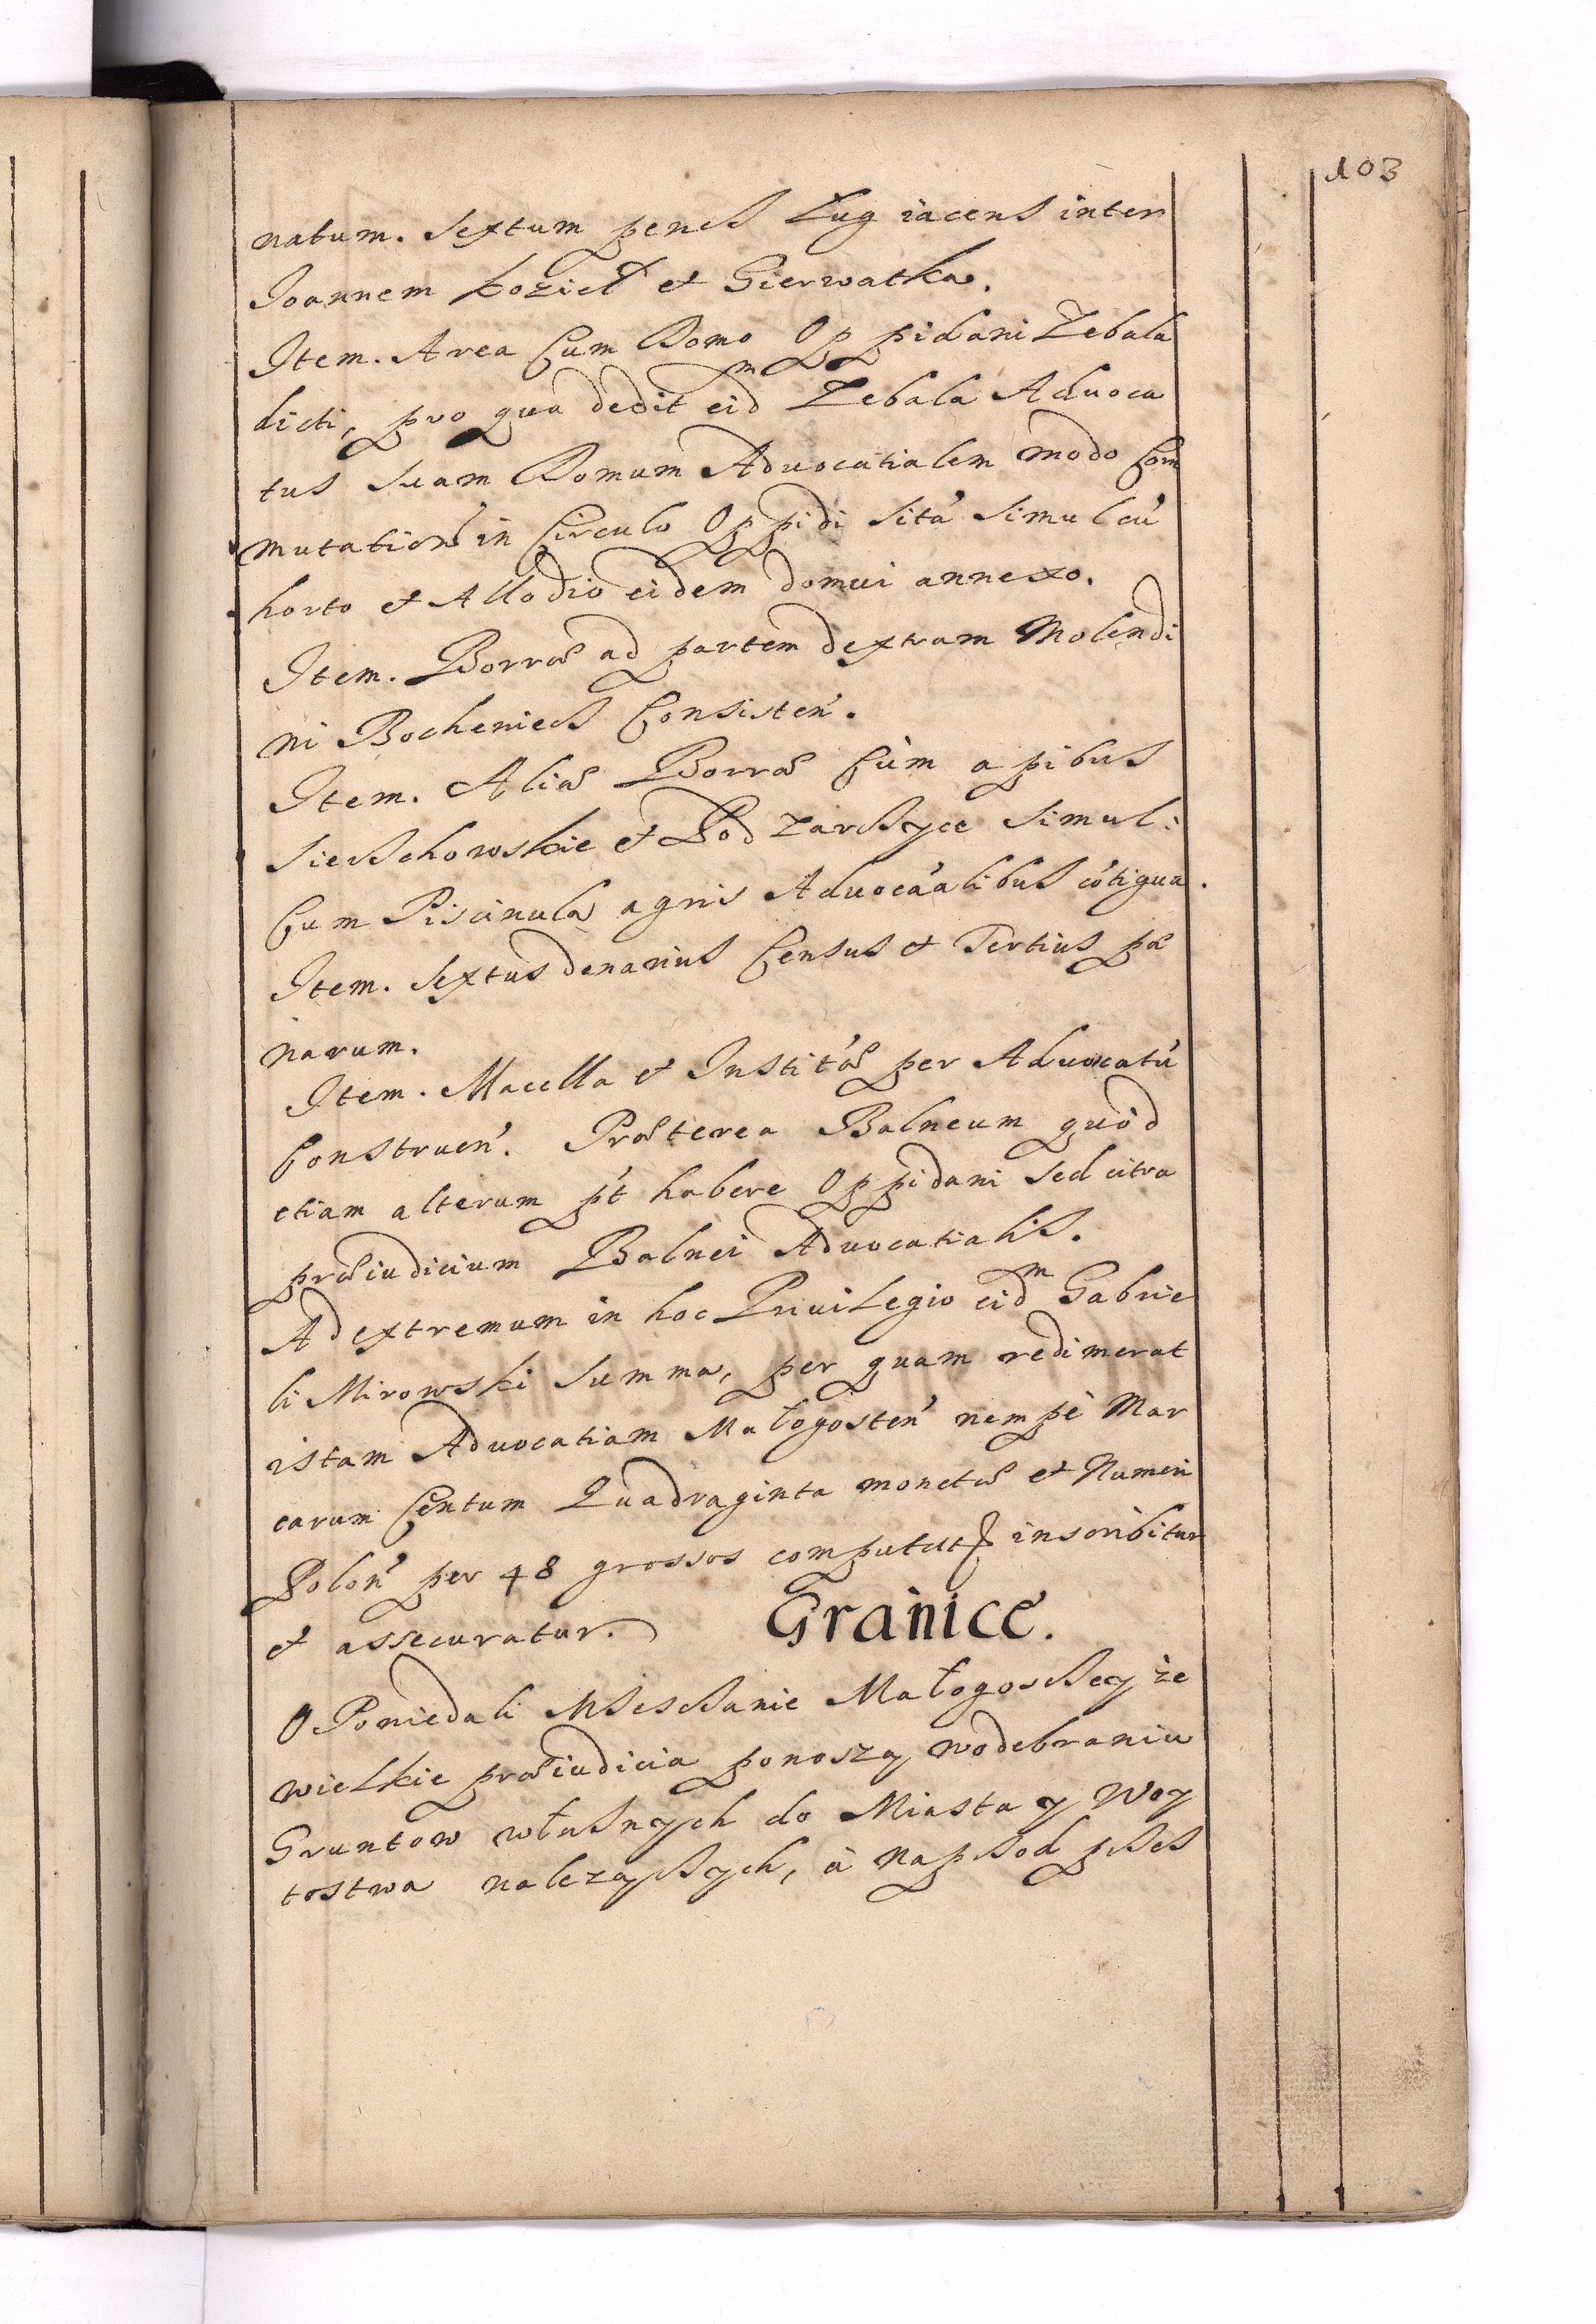 103
natum. Sextum penes Ług iacens inter
Joannem kozieł et Gierwatka.
Item. Area Cum Domo Oppidani Zebala
dicti, pro qua dedit eidm Zebala Aduoca
tus suam Domum Aduocatialem modo Com
mutation' in Circulo Oppidi sitá simul cú
horto et Allodio eidem domui annexo.
Item. Borræ ad partem dextram Molendi
ni Bocheniecz Consisten'.
Item. Aliæ Borræ Cùm apibus
Sieczchowskie et Podzarczyce simul:
Cum Piscinula agris Aduocá'alibus cótigua.
Item. Sextus denarius Census et Tertius pæ
narum.
Item. Macella et Institæ per Aduocatú
Construen'. Præterea Balneum quòd
etiam alterum pt habere Oppidani sed citra
præiudicium Balnei Aduocatialis.
Ad extremum in hoc Priuilegio eidm Gabrie
li Mirowski Summa, per quam redimerat
istam Aduocatiam Małogosten' nempè Mar
carum Centum Quadraginta monetæ et Numeri
Polon' per 48 grossos computat inscribitur
et assecuratur.
Granice.
O Powiedali Mieszczanie Małogosczcy że
wielkie præiudicia ponoszą, w odebraniu
Gruntow własnych do Miasta y Woy
tostwa nalezączych, à naprzod przes